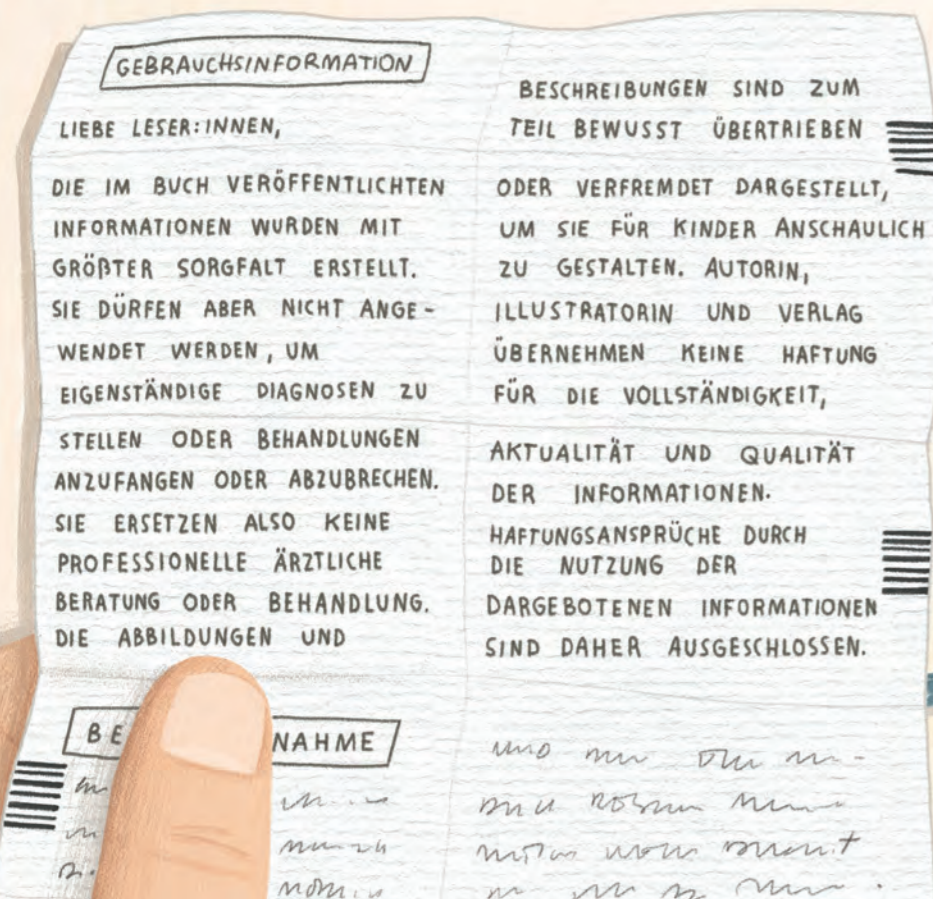 GEBRAUCHSINFORMATION
LIEBE LESER:INNEN,
DIE IM BUCH VERÖFFENTLICHTEN
INFORMATIONEN WURDEN MIT
GRÖßTER SORGFALT ERSTELLT.
SIE DÜRFEN ABER NICHT ANGE-
WENDET WERDEN, UM
EIGENSTÄNDIGE DIAGNOSEN ZU
STELLEN ODER BEHANDLUNGEN
ANZUFANGEN ODER ABZUBRECHEN.
SIE ERSETZEN ALSO KEINE
PROFESSIONELLE ÄRZTLICHE
BERATUNG ODER BEHANDLUNG.
DIE ABBILDUNGEN UND
BESCHREIBUNGEN SIND ZUM
TEIL BEWUSST ÜBERTRIEBEN
ODER VERFREMDET DARGESTELLT,
UM SIE FÜR KINDER ANSCHAULICH
ZU GESTALTEN. AUTORIN,
ILLUSTRATORIN UND VERLAG
ÜBERNEHMEN KEINE HAFTUNG
FÜR DIE VOLLSTÄNDIGKEIT,
AKTUALITÄT UND QUALITÄT
DER INFORMATIONEN.
HAFTUNGSANSPRÜCHE DURCH
DIE NUTZUNG DER
DARGEBOTENEN INFORMATIONEN
SIND DAHER AUSGESCHLOSSEN.